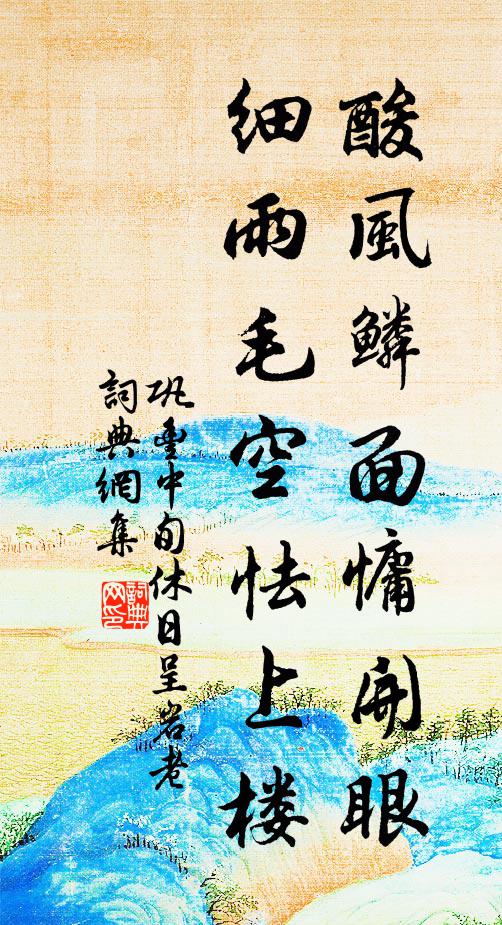 酸風鱗面慵開眼
細雨毛空怯上楼
巩豐中旬休日呈岩老
詞典網集
詞典